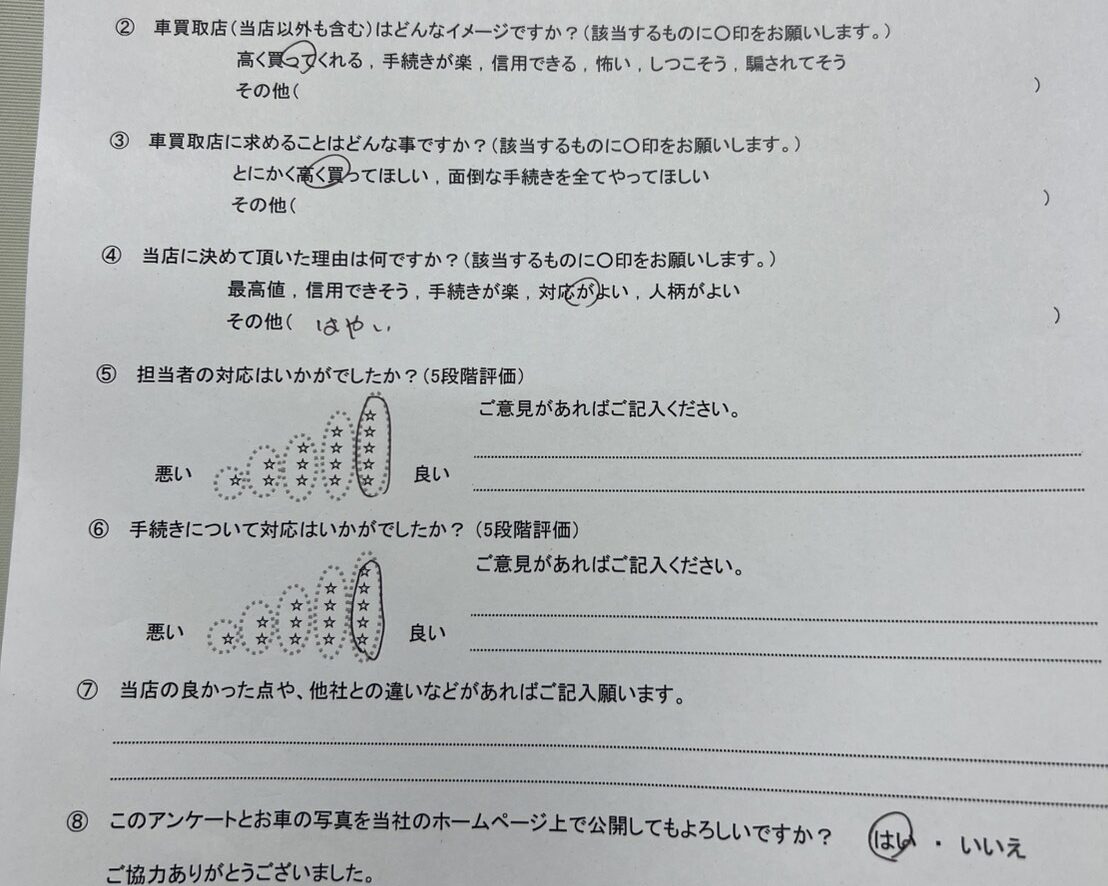 ② 車買取店(当店以外も含む)はどんなイメージですか?(該当するものに〇印をお願いします。)
高く買ってくれる , 手続きが楽 , 信用できる , 怖い , しつこそう , 騙されてそう
その他( )
③ 車買取店に求めることはどんな事ですか?(該当するものに〇印をお願いします。)
とにかく高く買ってほしい , 面倒な手続きを全てやってほしい
その他( )
④ 当店に決めて頂いた理由は何ですか?(該当するものに〇印をお願いします。)
最高値 , 信用できそう , 手続きが楽 , 対応がよい , 人柄がよい
その他( はやい )
⑤ 担当者の対応はいかがでしたか?(5段階評価)
ご意見があればご記入ください。
悪い 良い
⑥ 手続きについて対応はいかがでしたか? (5段階評価)
ご意見があればご記入ください。
悪い 良い
⑦ 当店の良かった点や、他社との違いなどがあればご記入願います。
⑧ このアンケートとお車の写真を当社のホームページ上で公開してもよろしいですか? はい ・ いいえ
ご協力ありがとうございました。